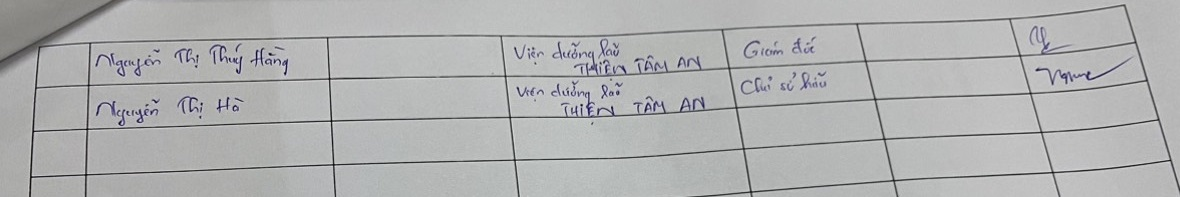 Nguyễn Thị Thuý Hằng
Viện dưỡng lão
THIỆN TÂM AN
Giám đốc
Nguyễn Thị Hà
Viện dưỡng lão
THIỆN TÂM AN
Chủ sở hữu